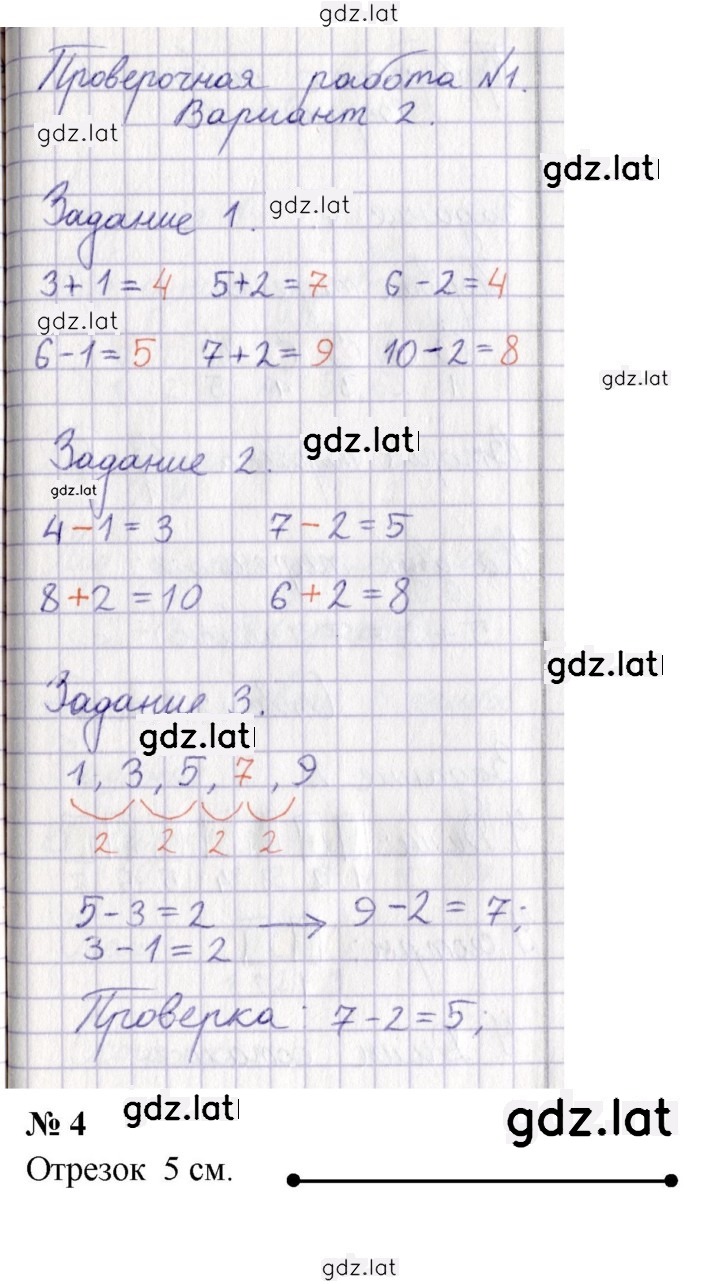 gdz.lat
Проверочная работа №1.
Вариант 2.
gdz.lat
gdz.lat
Задание 1.
gdz.lat
3+1=4 5+2=7 6-2=4
gdz.lat
6-1=5 7+2=9 10-2=8
gdz.lat
gdz.lat
Задание 2.
gdz.lat
4-1=3 7-2=5
8+2=10 6+2=8
gdz.lat
Задание 3.
gdz.lat
1, 3, 5, 7, 9
2 2 2 2
5-3=2 → 9-2=7;
3-1=2
Проверка: 7-2=5;
№ 4
gdz.lat
gdz.lat
Отрезок 5 см.
gdz.lat